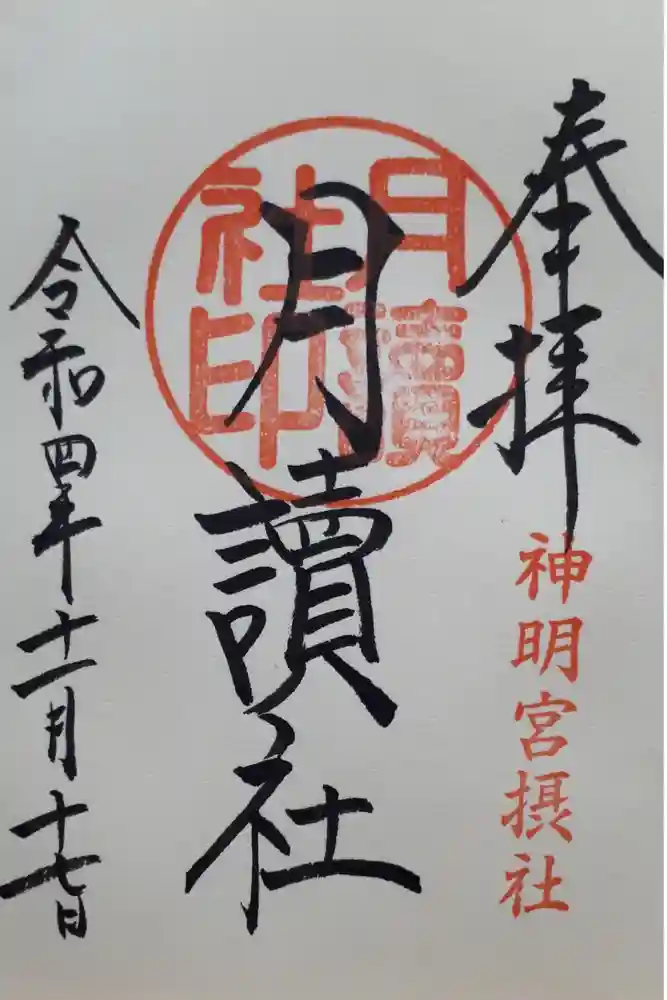 奉拝
神明宮摂社
月讀社
月讀
社印
令和四年十一月十七日